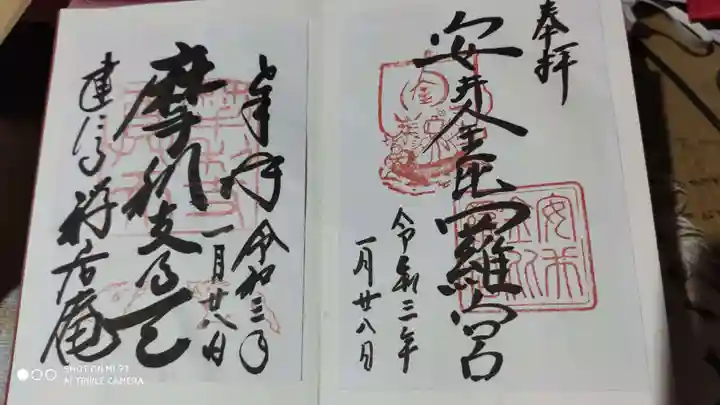 奉拝
安井金比羅宮
令和三年
一月廿八日
奉拝
令和三年
一月廿八日
摩利支尊天
建仁寺 禅居庵
SHOT ON MI 9T
AI TRIPLE CAMERA